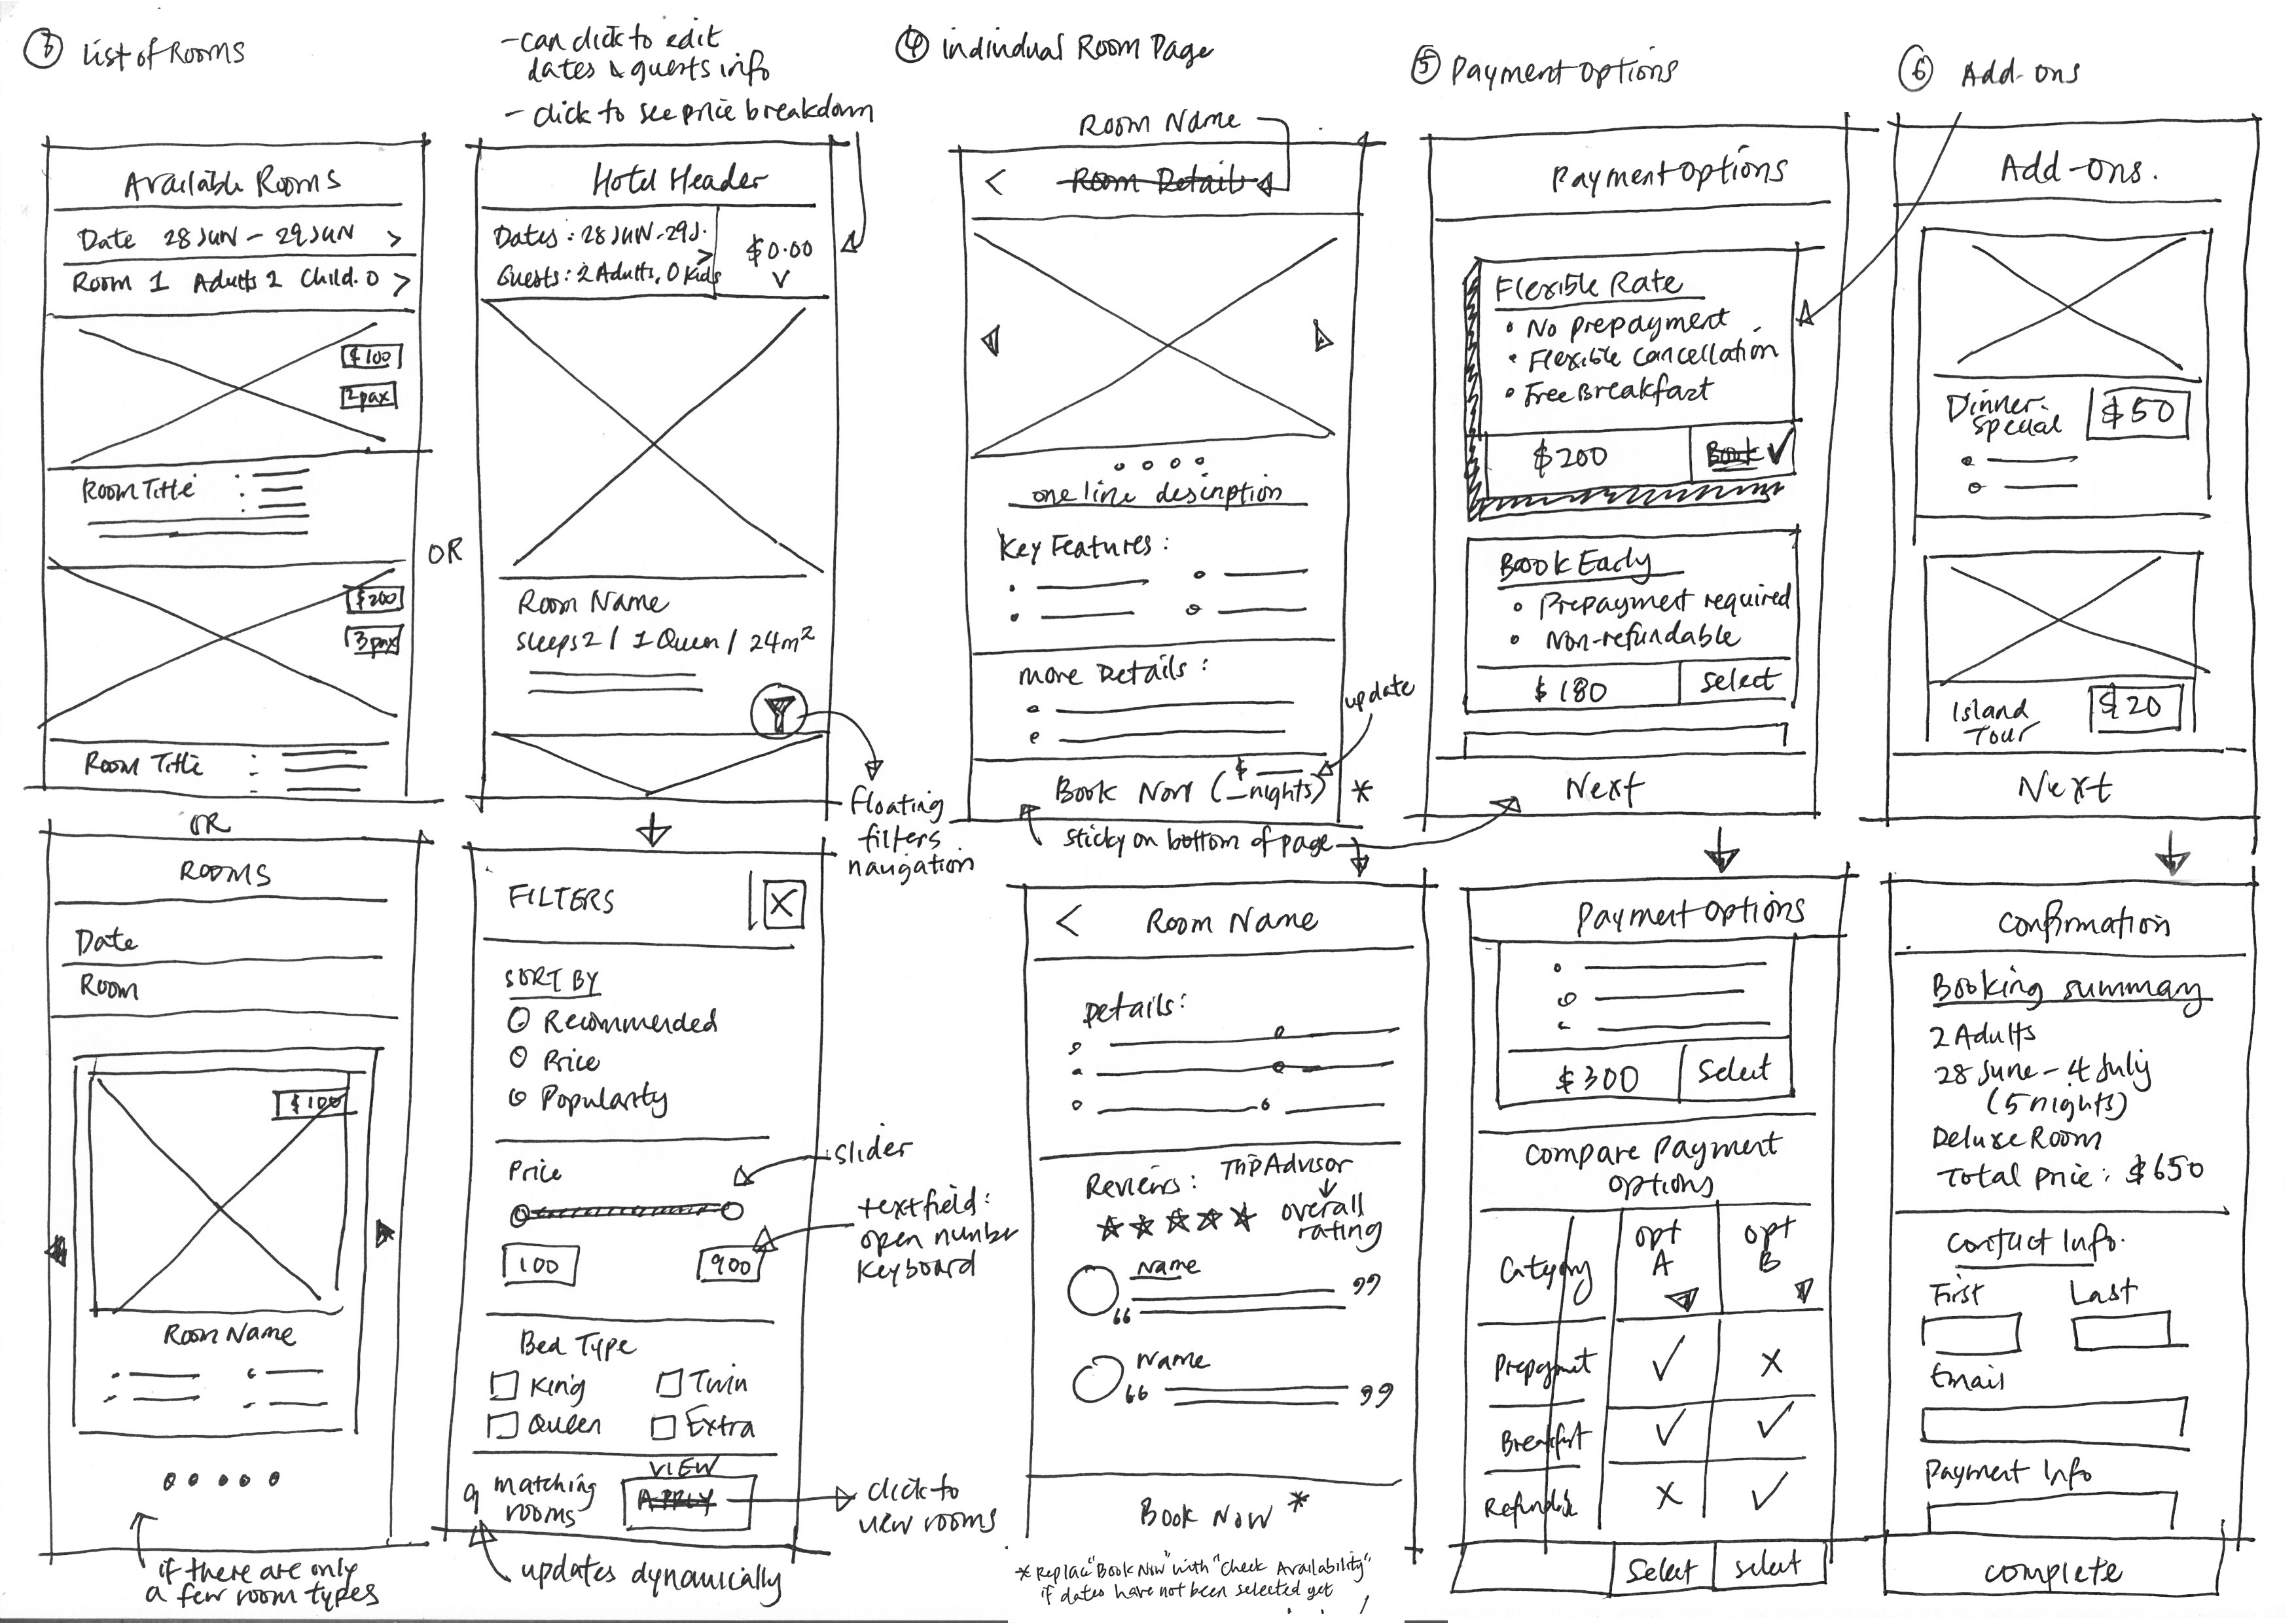 ③ List of Rooms
Available Rooms
Date 28 JUN - 29 JUN >
Room 1 Adults 2 Child. 0 >
$100
2pax
Room Title
$200
3pax
Room Title
OR
OR
ROOMS
Date
Room
$100
Room Name
if there are only
a few room types
- can click to edit
dates & guests info
- click to see price breakdown
Hotel Header
Dates: 28 JUN-29J. >
Guests: 2 Adults, 0 Kids
$0.00
Room Name
Sleeps 2 / 1 Queen / 24m²
Floating
filters
navigation
FILTERS X
SORT BY
Recommended
Price
Popularity
Price
slider
100
900
textfield:
open number
keyboard
Bed Type
King
Twin
Queen
Extra
9 matching
rooms
VIEW
APPLY
click to
view rooms
updates dynamically
④ individual Room Page
Room Name
< Room Details
one line description
Key Features:
More Details:
update
Book Now ($ __
_nights) *
sticky on bottom of page
< Room Name
Details:
Reviews: TripAdvisor
overall
rating
Name
“ ”
Name
“ ”
Book Now *
* Replace "Book Now" with "Check Availability"
if dates have not been selected yet
⑤ Payment Options
Payment Options
Flexible Rate
• No prepayment
• Flexible Cancellation
• Free Breakfast
$200
Book ✓
Book Early
• Prepayment required
• Non-refundable
$180
Select
Next
Payment Options
$300
Select
Compare Payment
Options
Category
opt
A
opt
B
Prepaymet ✓ x
Breakfast ✓ ✓
Refundable x ✓
Select
Select
⑥ Add-ons
Add-ons.
Dinner
Special
$50
Island
Tour
$20
Next
Confirmation
Booking summary
2 Adults
28 June - 4 July
(5 nights)
Deluxe Room
Total Price: $650
Contact Info.
First
Last
Email
Payment Info
Complete